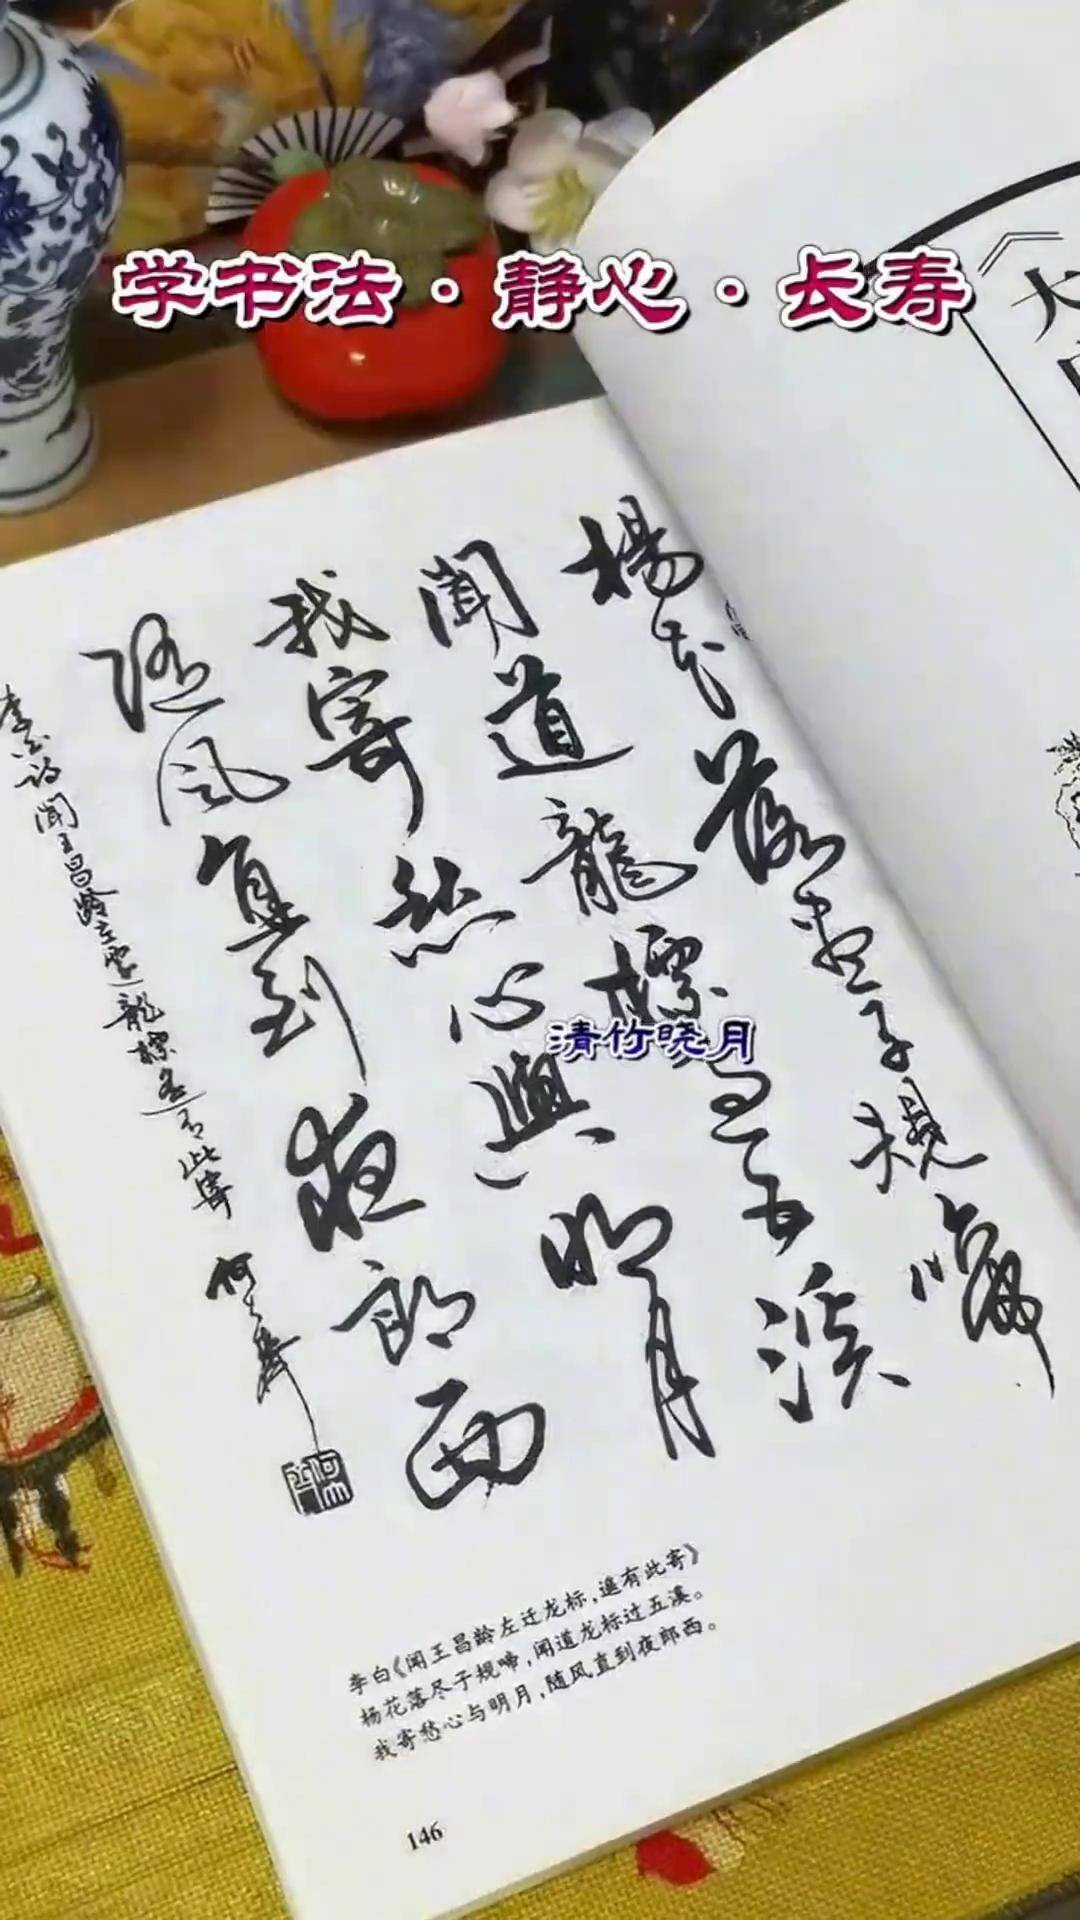 学书法·静心·长寿
楊花落盡子規啼
聞道龍標過五溪
我寄愁心與明月
随風直到夜郎西
李白詩聞王昌龄左遷龍標遥有此寄
清竹晓月
李白《闻王昌龄左迁龙标，遥有此寄》
杨花落尽子规啼，闻道龙标过五溪。
我寄愁心与明月，随风直到夜郎西。
146